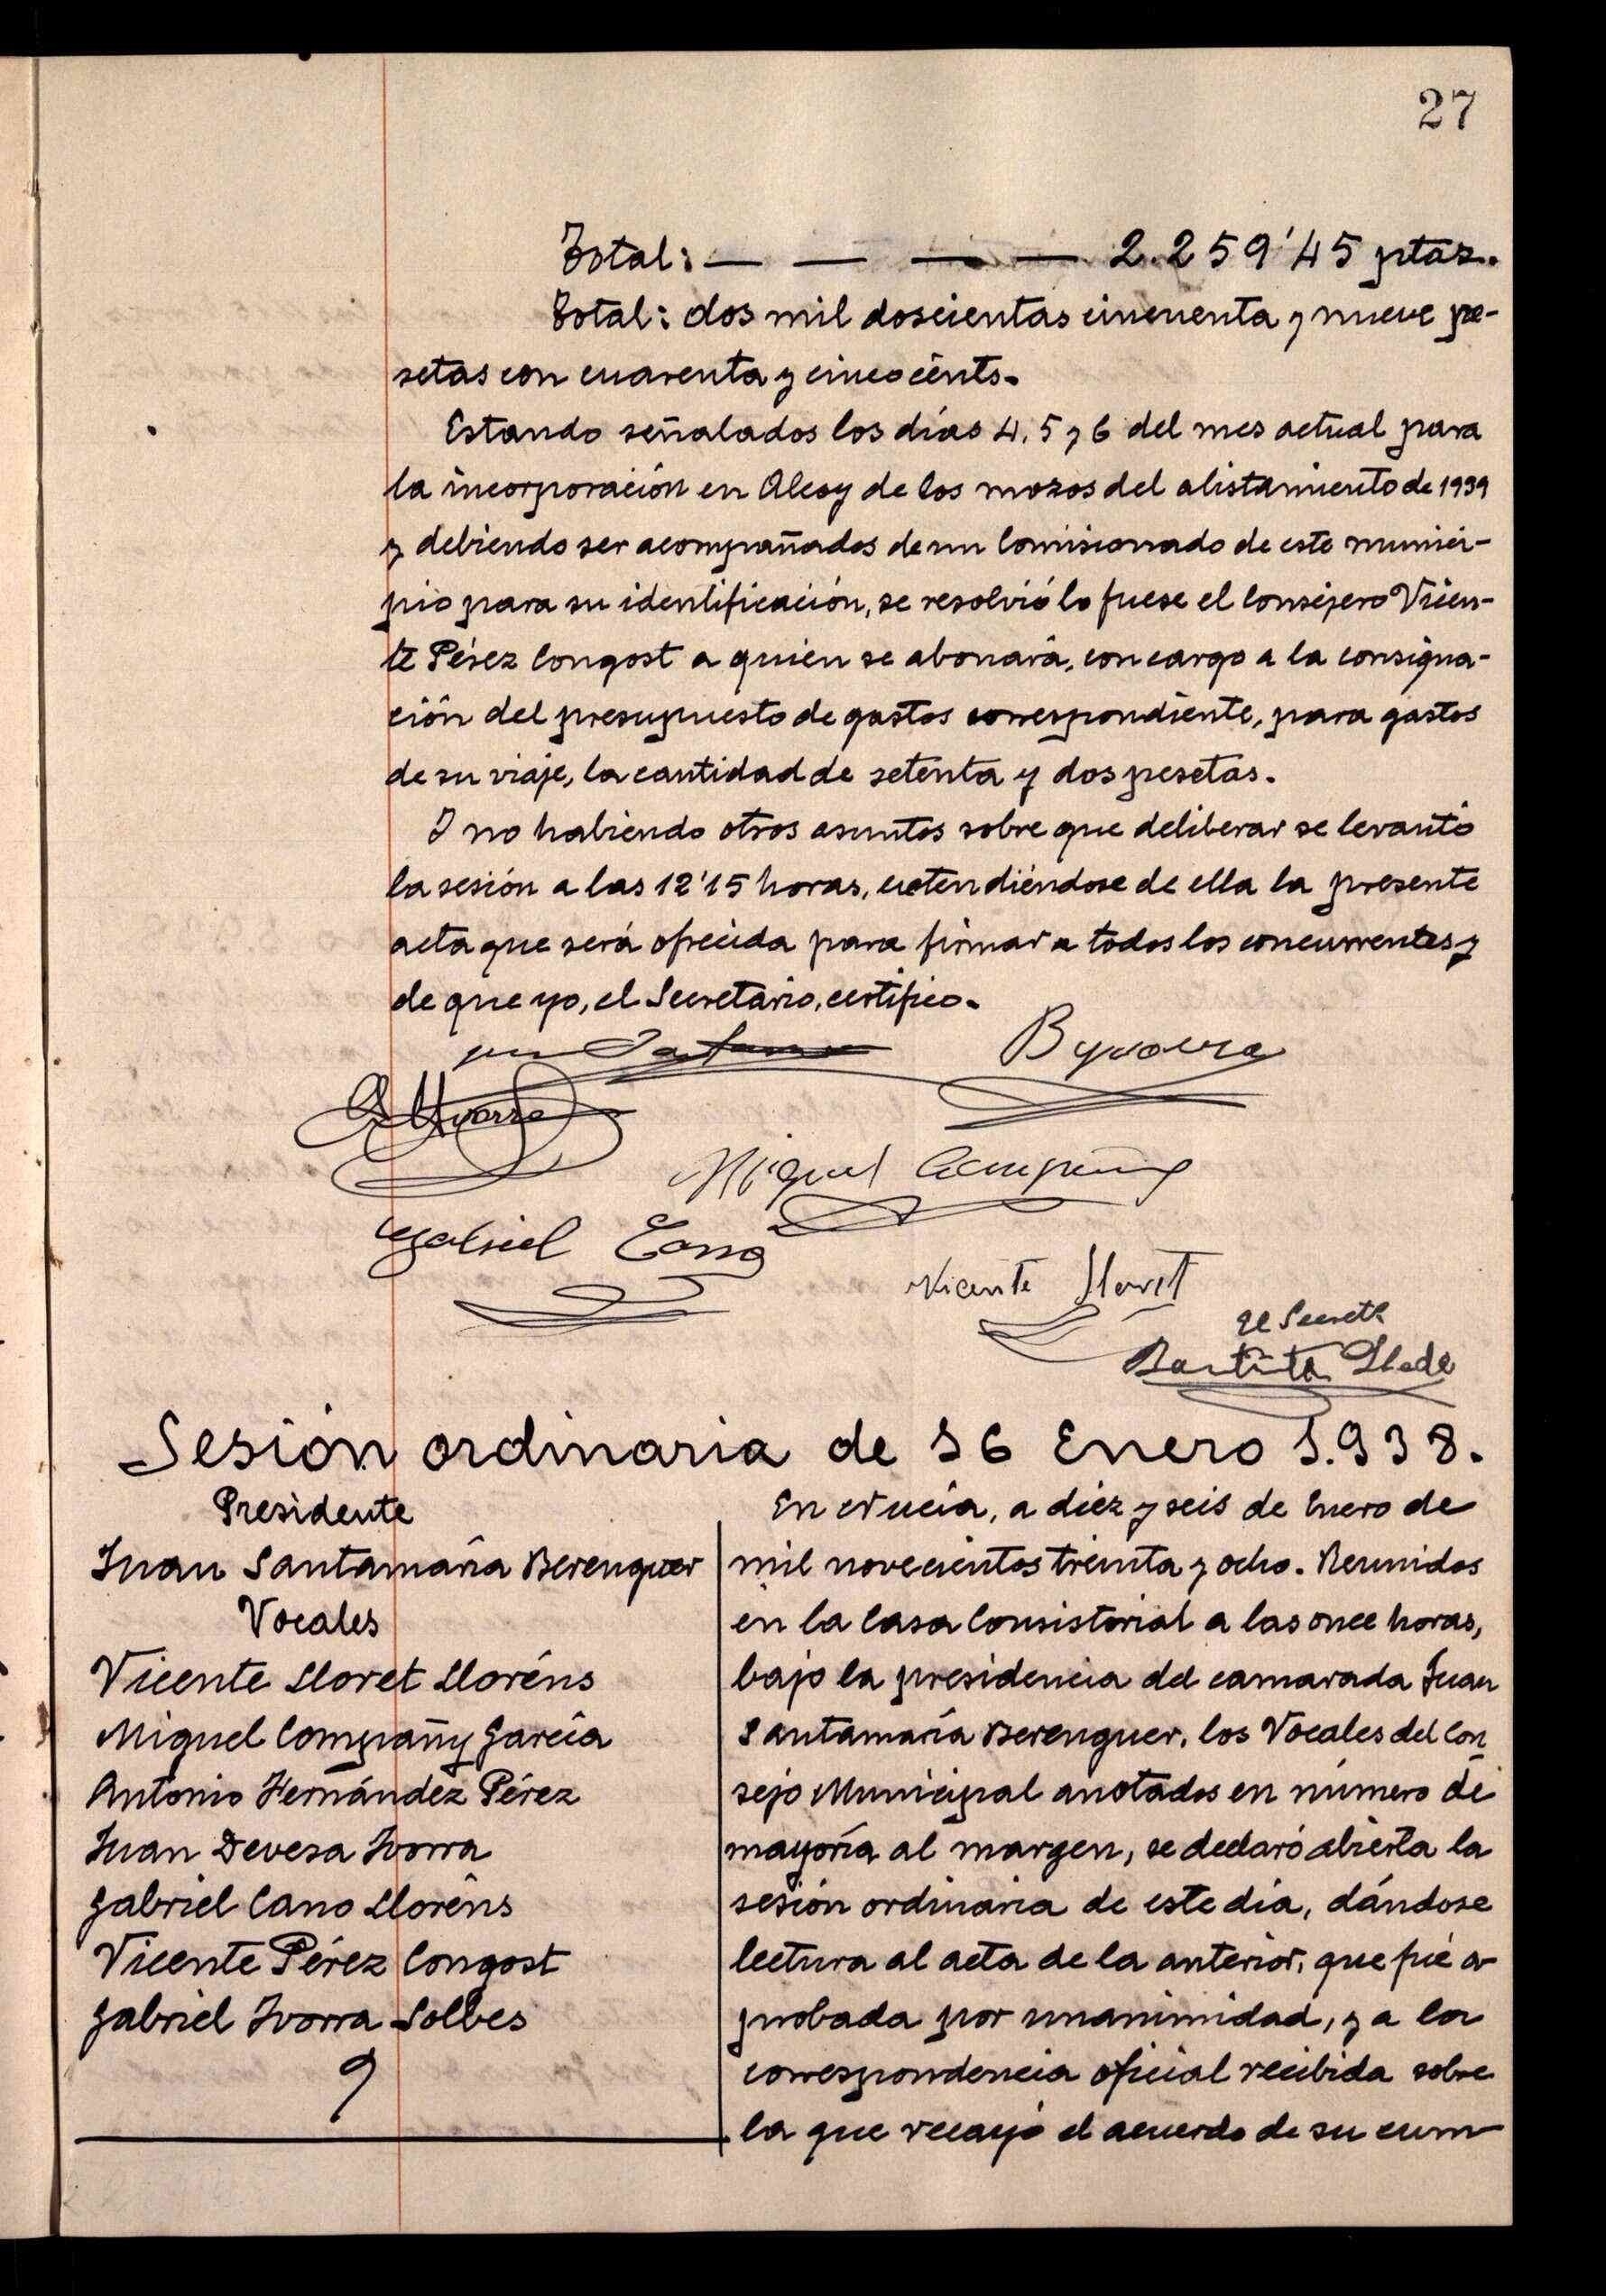 27
Total: — — — — 2.259'45 ptas.
Total: dos mil doscientas cincuenta y nueve pe-
setas con cuarenta y cinco cénts.
Estando señalados los días 4, 5 y 6 del mes actual para
la incorporación en Alcoy de los mozos del alistamiento de 1939
y debiendo ser acompañados de un Comisionado de este munici-
pio para su identificación, se resolvió lo fuese el Consejero Vicen-
te Pérez Congost a quien se abonará, con cargo a la consigna-
ción del presupuesto de gastos correspondiente, para gastos
de su viaje, la cantidad de setenta y dos pesetas.
Y no habiendo otros asuntos sobre que deliberar se levantó
la sesión a las 12'15 horas, extendiéndose de ella la presente
acta que será ofrecida para firmar a todos los concurrentes y
de que yo, el Secretario, certifico.
Miguel Compañy
Gabriel Cano
Vicente Lloret
El Secret.
Bautista
Sesión ordinaria de 16 Enero 1.938.
Presidente
Juan Santamaría Berenguer
Vocales
Vicente Lloret Lloréns
Miguel Compañy García
Antonio Hernández Pérez
Juan Devesa Ivorra
Gabriel Cano Lloréns
Vicente Pérez Congost
Gabriel Ivorra Solbes
En Nucía, a diez y seis de Enero de
mil novecientos treinta y ocho. Reunidos
en la Casa Consistorial a las once horas,
bajo la presidencia del camarada Juan
Santamaría Berenguer, los Vocales del Con
sejo Municipal anotados en número de
mayoría al margen, se declaró abierta la
sesión ordinaria de este día, dándose
lectura al acta de la anterior, que fué a
probada por unanimidad, y a la
correspondencia oficial recibida sobre
la que recayó el acuerdo de su cum